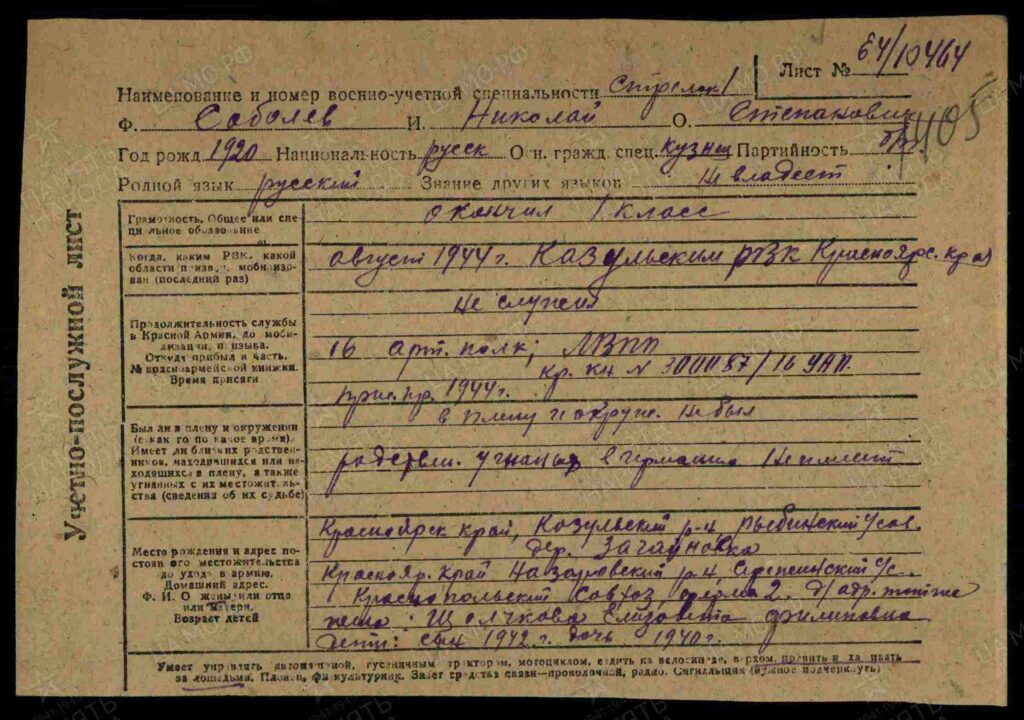 Лист № 64/10464
Наименование и номер военно-учетной специальности стрелок 1
Ф. Соболев И. Николай О. Степанович
1405
Год рожд. 1920 Национальность русск Осн. гражд. спец. кузнец Партийность б/п.
Родной язык русский Знание других языков не владеет
Учетно-послужной лист
Грамотность. Общее или специльное образование
окончил 1 класс
Когда, каким РВК, какой области призван, мобилизован (последний раз)
август 1944 г. Козульским РВК Красноярс. края
Продолжительность службы в Красной Армии, до мобилизации, призыва. Откуда прибыл в часть. № красноармейской книжки. Время присяги
не служил
16 арт. полк;
кр. кн N 300087/16 УАП.
прис. пр. 1944 г.
Был ли в плену и окружении (с как го по какое время). Имеет ли близких родственников, находившихся или находящихся в плену, а также угнанных с их местожительства (сведения об их судьбе)
в плену и окруже. не был
родствен. угнаных в германию не имеет
Место рождения и адрес постоян ого местожительства до ухода в армию. Домашний адрес. Ф. И. О жены или отца или матери. Возраст детей
Красноярск край, Козульский р-н, Рыбинский с/сов.
дер.
Краснояр. край Назаровский р-н, с/с.
Краснопольский Совхоз, ферма 2. д/адр.
жена: Елизовета Филиповна
дети: сын 1942 г. дочь 1940 г.
Умеет управлять автомашиной, гусеничным трактором, мотоциклом, ездить на велосипеде, верхом, править и
за лошадьми. Пловец, физкультурник. Знает средства связи—проволочной, радио. Сигнальщик (нужное подчеркнуть)